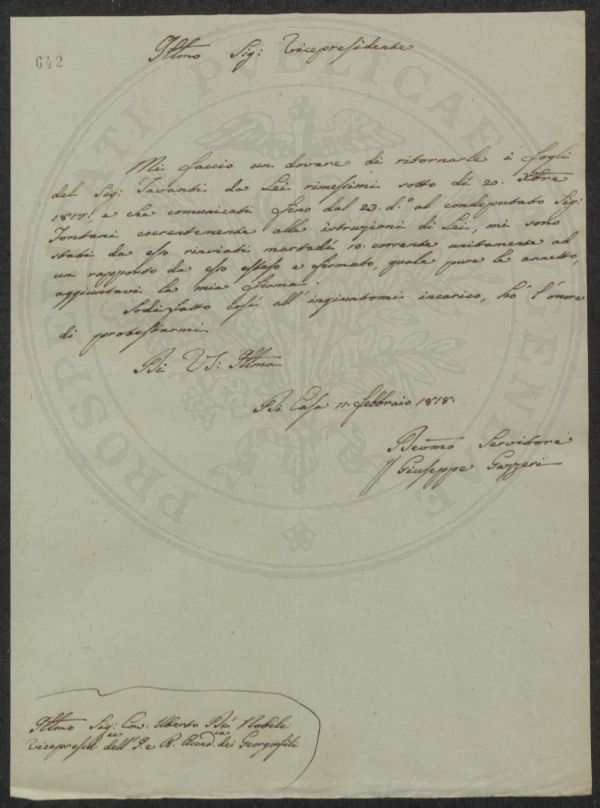 642
Illmo Sig: Vicepresidente
Mi faccio un dovere di ritornarle i fogli
del Sig: Tavanti da Lei rimessimi sotto dì 20. Xbre
1817. e che comunicati fino dal 23 d.º al condeputato Sig:
Fontani coerentemente alle istruzioni di Lei, mi sono
stati da esso rinviati martedì 10 corrente unitamente ad
un rapporto da esso esteso e firmato, quale pure le annetto,
aggiuntavi la mia firma.
Sodisfatto così all'ingiuntomi incarico, hò l'onore
di protestarmi
Di VS: Illma
Di Casa 11. Febbraio 1818.
Devmo Servitore
Giuseppe Gazzeri
Illmo Sig: Cav: Uberto De' Nobili
Vicepresid.te dell'I. e R. Accad.ia dei Georgofili
PROSPERITATI PUBLICAE AUGENDAE